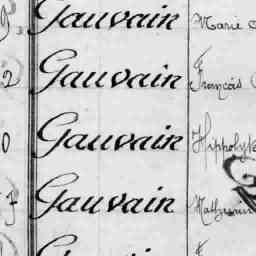 9. Gauvain Marie
2 Gauvain François
0 Gauvain Hippolyte
7 Gauvain Mathurin
Gauvain